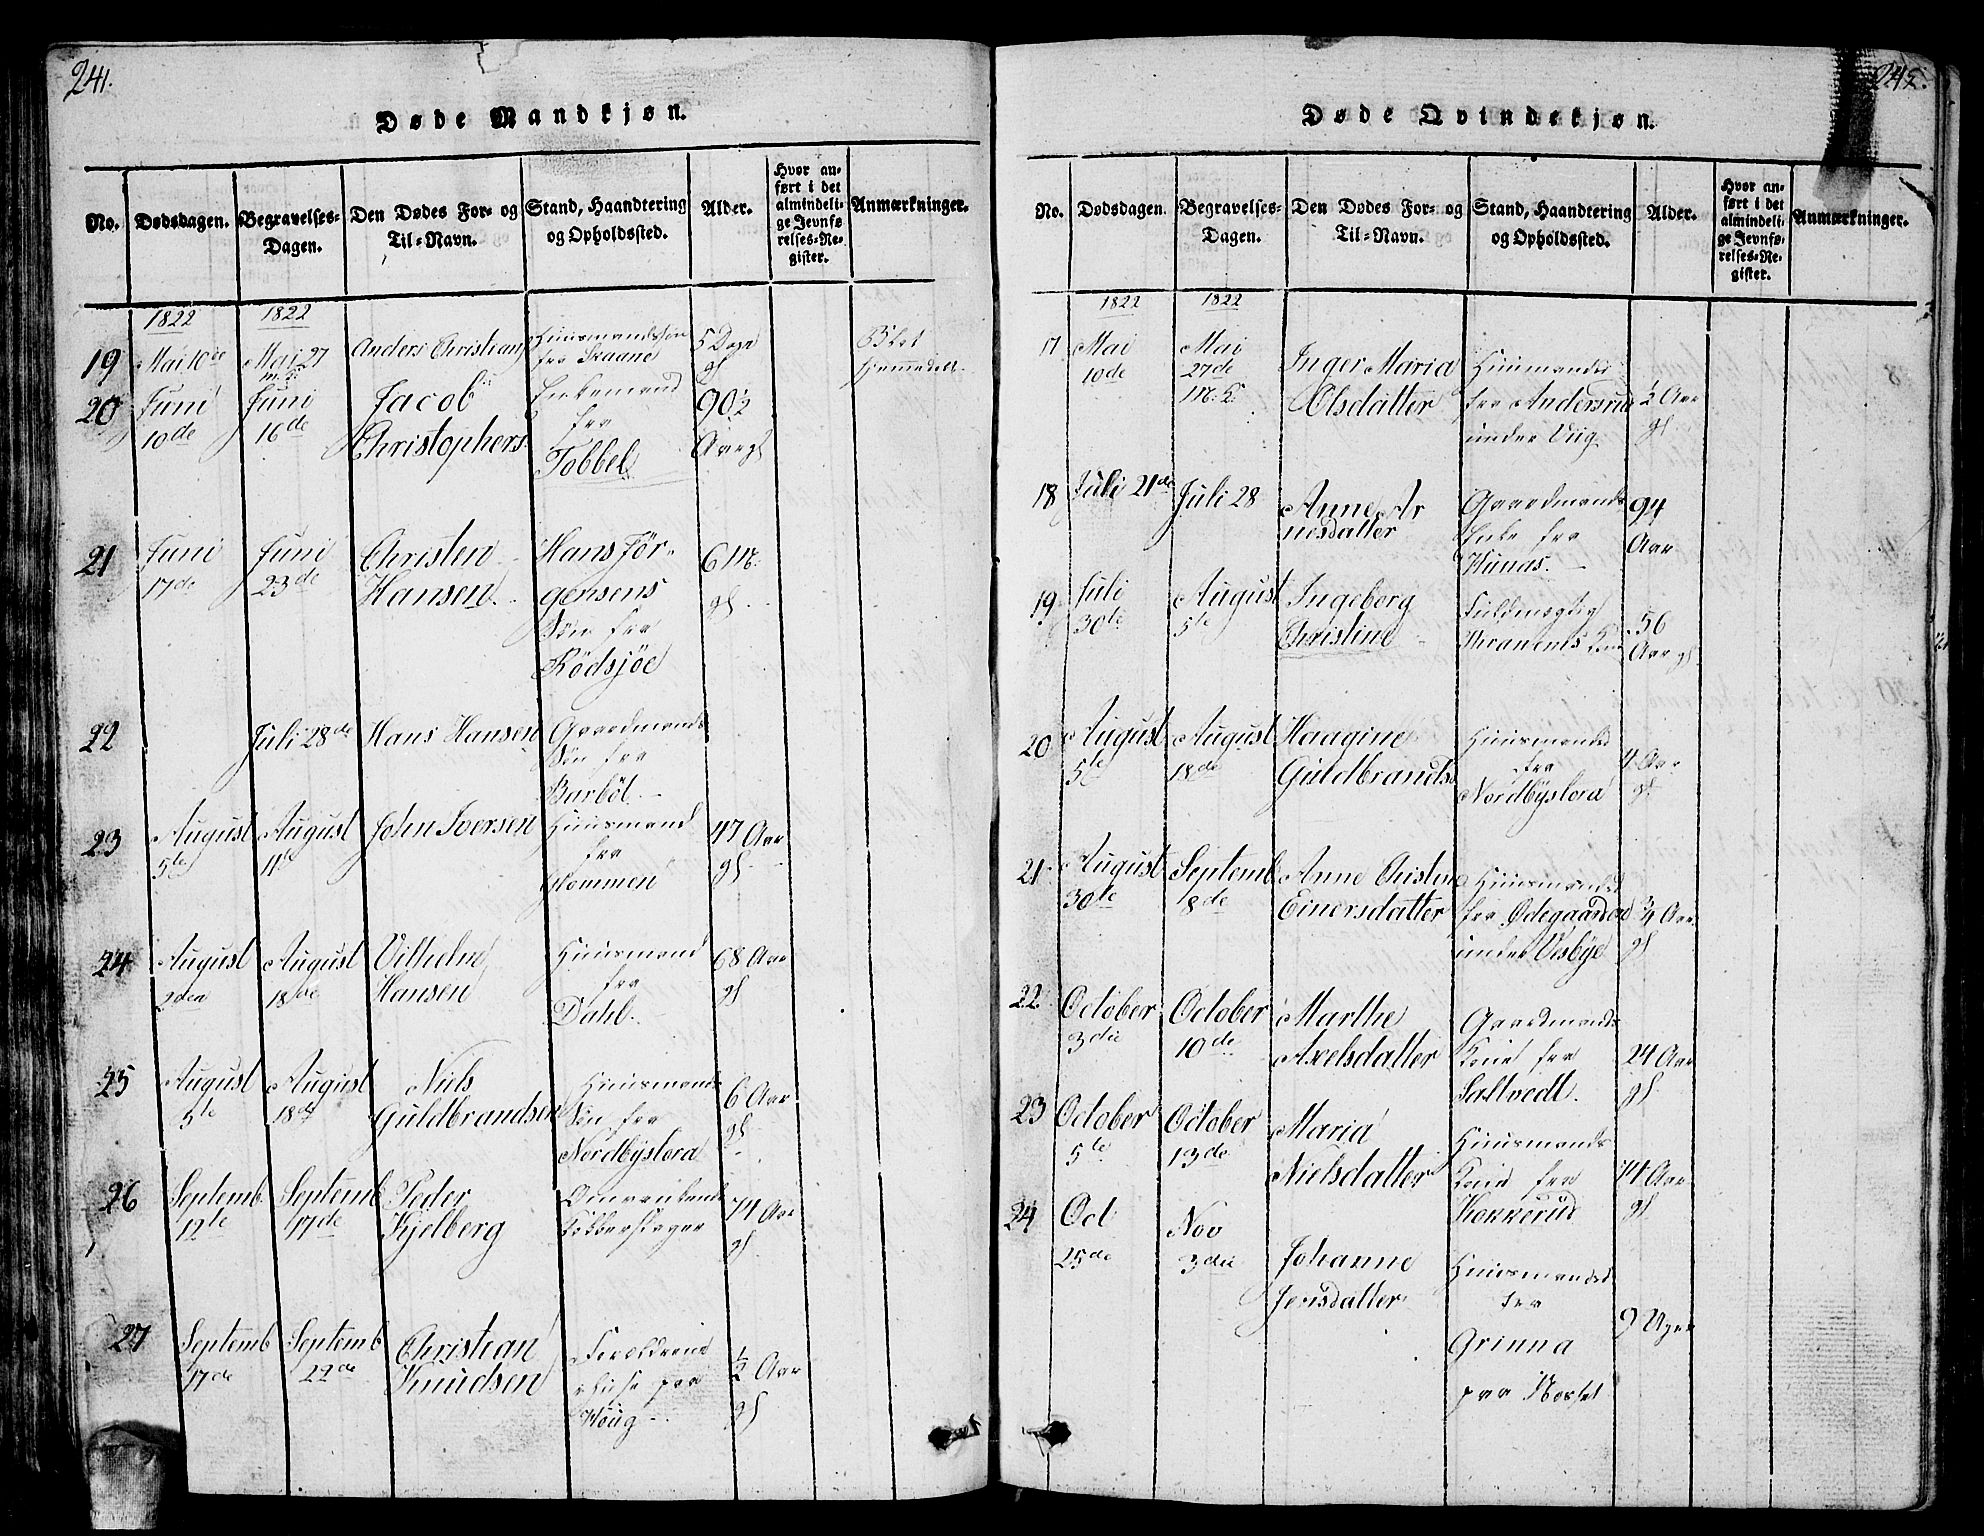 241.
Døde Mandkjøn.
No. Dødsdagen. Begravelses-Dagen. Den Dødes For- og Til-Navn. Stand, Haandtering og Opholdssted. Alder. Hvor anført i det almindelige Jevnførelses-Register. Anmærkninger.
1822 1822
19 Mai 10de Mai 27 Anders Christians Huusmandssøn 5 Dage
fra Skaane gl
20 Juni Juni Jacob Enkemand 90½
10de 16de Christophers fra Aar gl
Tobbel
21 Juni Juni Christen Hans Jör- 6 M.
17de 23de Hansen gensens gl
Søn fra
Rödsjöe
22 Juli 28de Hans Hansen Gaardmands
Søn fra
Barböl
23 August August John Iversen Huusmand 47 Aar
5te 11te fra gl
Glommen
24 August August Vilhelm Huusmand 68 Aar
2den 18de Hansen fra gl
Dahl.
25 August August Niels Huusmands 6 Aar
5te 18de Guldbrandsen Søn fra gl
Nordbyslora
26 Septemb Septemb Peder Omvankende 74 Aar
12te 17de Kjelberg Kobberslager gl
27 Septemb Septemb Christian Forældrene ½ Aar
17de 22de Knudsen gl
Houg
242.
Døde Qvindekjøn.
No. Dødsdagen. Begravelses-Dagen. Den Dødes For- og Til-Navn. Stand, Haandtering og Opholdssted. Alder. Hvor anført i det almindelige Jevnførelses-Register. Anmærkninger.
1822 1822
17 Mai Mai Inger Maria Huusmandsd
10de 27de Olsdatter fra Andersrud ½ Aar
under Viig gl
18 Juli 21de Juli 28 Anne Ar Gaardmands 94
nesdatter Enke fra Aar
Hunas.
19 Juli August Ingeborg Fuldmægtig 56
30te 5te Christine Thranems Kone Aar gl
20 August August Haagine Huusmandsd 4 Aar
5te 18de Guldbrandsd fra gl
Nordbyslora
21 August Septemb Anne Christene Huusmandsd
30te 8de Einersdatter fra Ødegaarden ¾ Aar
under Visbye gl
22 October October Marthe Gaardmands
3die 10de Axelsdatter Kone fra 24 Aar
Saltvedt. gl
23 October October Maria Huusmands
5te 13de Nielsdatter Kone fra 74 Aar
Kokkerud gl
24 Oct Nov Johanne Huusmandsd
25de 3die Jensdatter fra 9 Uger
Grinna
paa